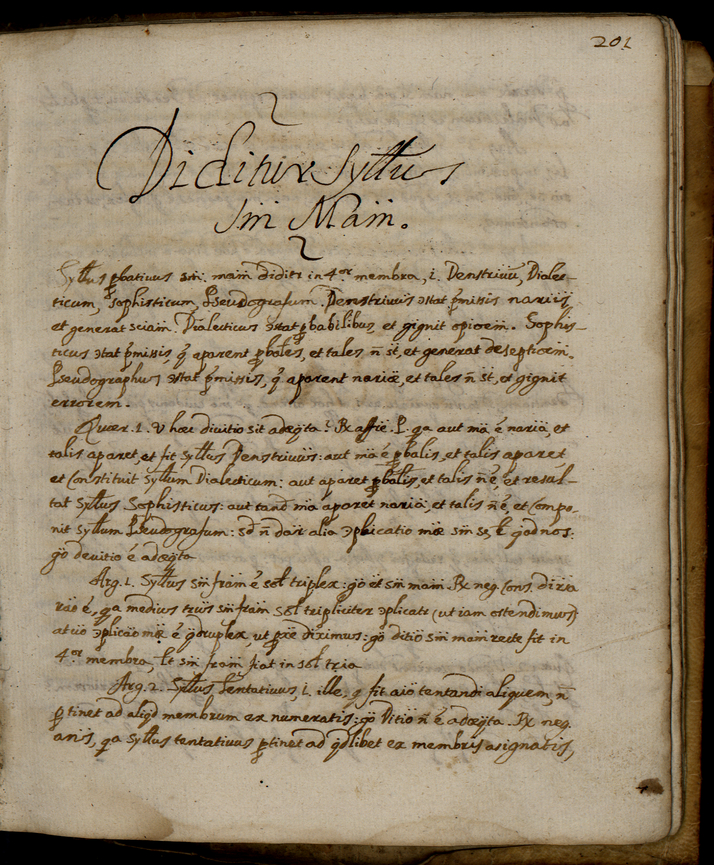 201
Diditur Syllus
Sm̃ Mam̃.
Syllus ꝓbativus sm̃. mam̃ diditr in 4or membra, i. Denstrivũ, Dialec-
ticum, Sophisticum, Pseudografum. Denstrivus ɔstat p̃missis nariis,
et generat sciam̃. Dialecticus ɔstat ꝓbabilibus, et gignit opioem̃. Sophis-
ticus ɔtat p̃missis, q̃ aparent ꝓbales, et tales ñ st̃, et generat deseptioem̃.
Pseudographus ɔstat p̃missis, q̃ aparent nariæ, et tales ñ st̃, et gignit
errorem.
Quær. 1. V hæc divitio sit adæq̃ta? Rx affir̃e. P. qa aut mã ẽ nariã, et
talis aparet, et fit Syllus Denstrivus: aut mã ẽ ꝓbalis, et talis aparet,
et Constituit Syllum Dialecticum: aut aparet ꝓbalis, et talis ñ ẽ, et resul-
tat Syllus Sophisticus: aut tand̃ mã aparet nariã, et talis ñ ẽ, et Compo-
nit Syllum Pseudografum: sd̃ ñ dar̃ alia ɔplicatio mæ̃ sm̃ se, q̃od nos:
gõ devitio ẽ adæq̃ta
Arg. 1. Syllus sm̃ fram̃ ẽ sol̃ triplex: gõ et sm̃ mam̃. Rx neg. Cons. dira
rão ẽ, qa medius trius sm̃ fram̃ sol̃ tripliciter ɔplicatr (ut iam ostendimus)
at ũo ɔplicão mæ̃ ẽ q̃druplex, ut p̃ræ diximus: gõ ditio sm̃ mam̃ recte fit in
4or membra, lt sm̃ fram̃ fiat in sol̃ tria
Arg. 2. Syllus tentativus, i. ille, q̃ fit aĩo tentandi aliquem, ñ
ꝑtinet ad aliq̃d membrum ex numeratis: gõ Ditio ñ ẽ adæq̃ta. Rx neg.
anĩs, qa Syllus tentativus ꝑtinet ad q̃dlibet ex membris asignatis,